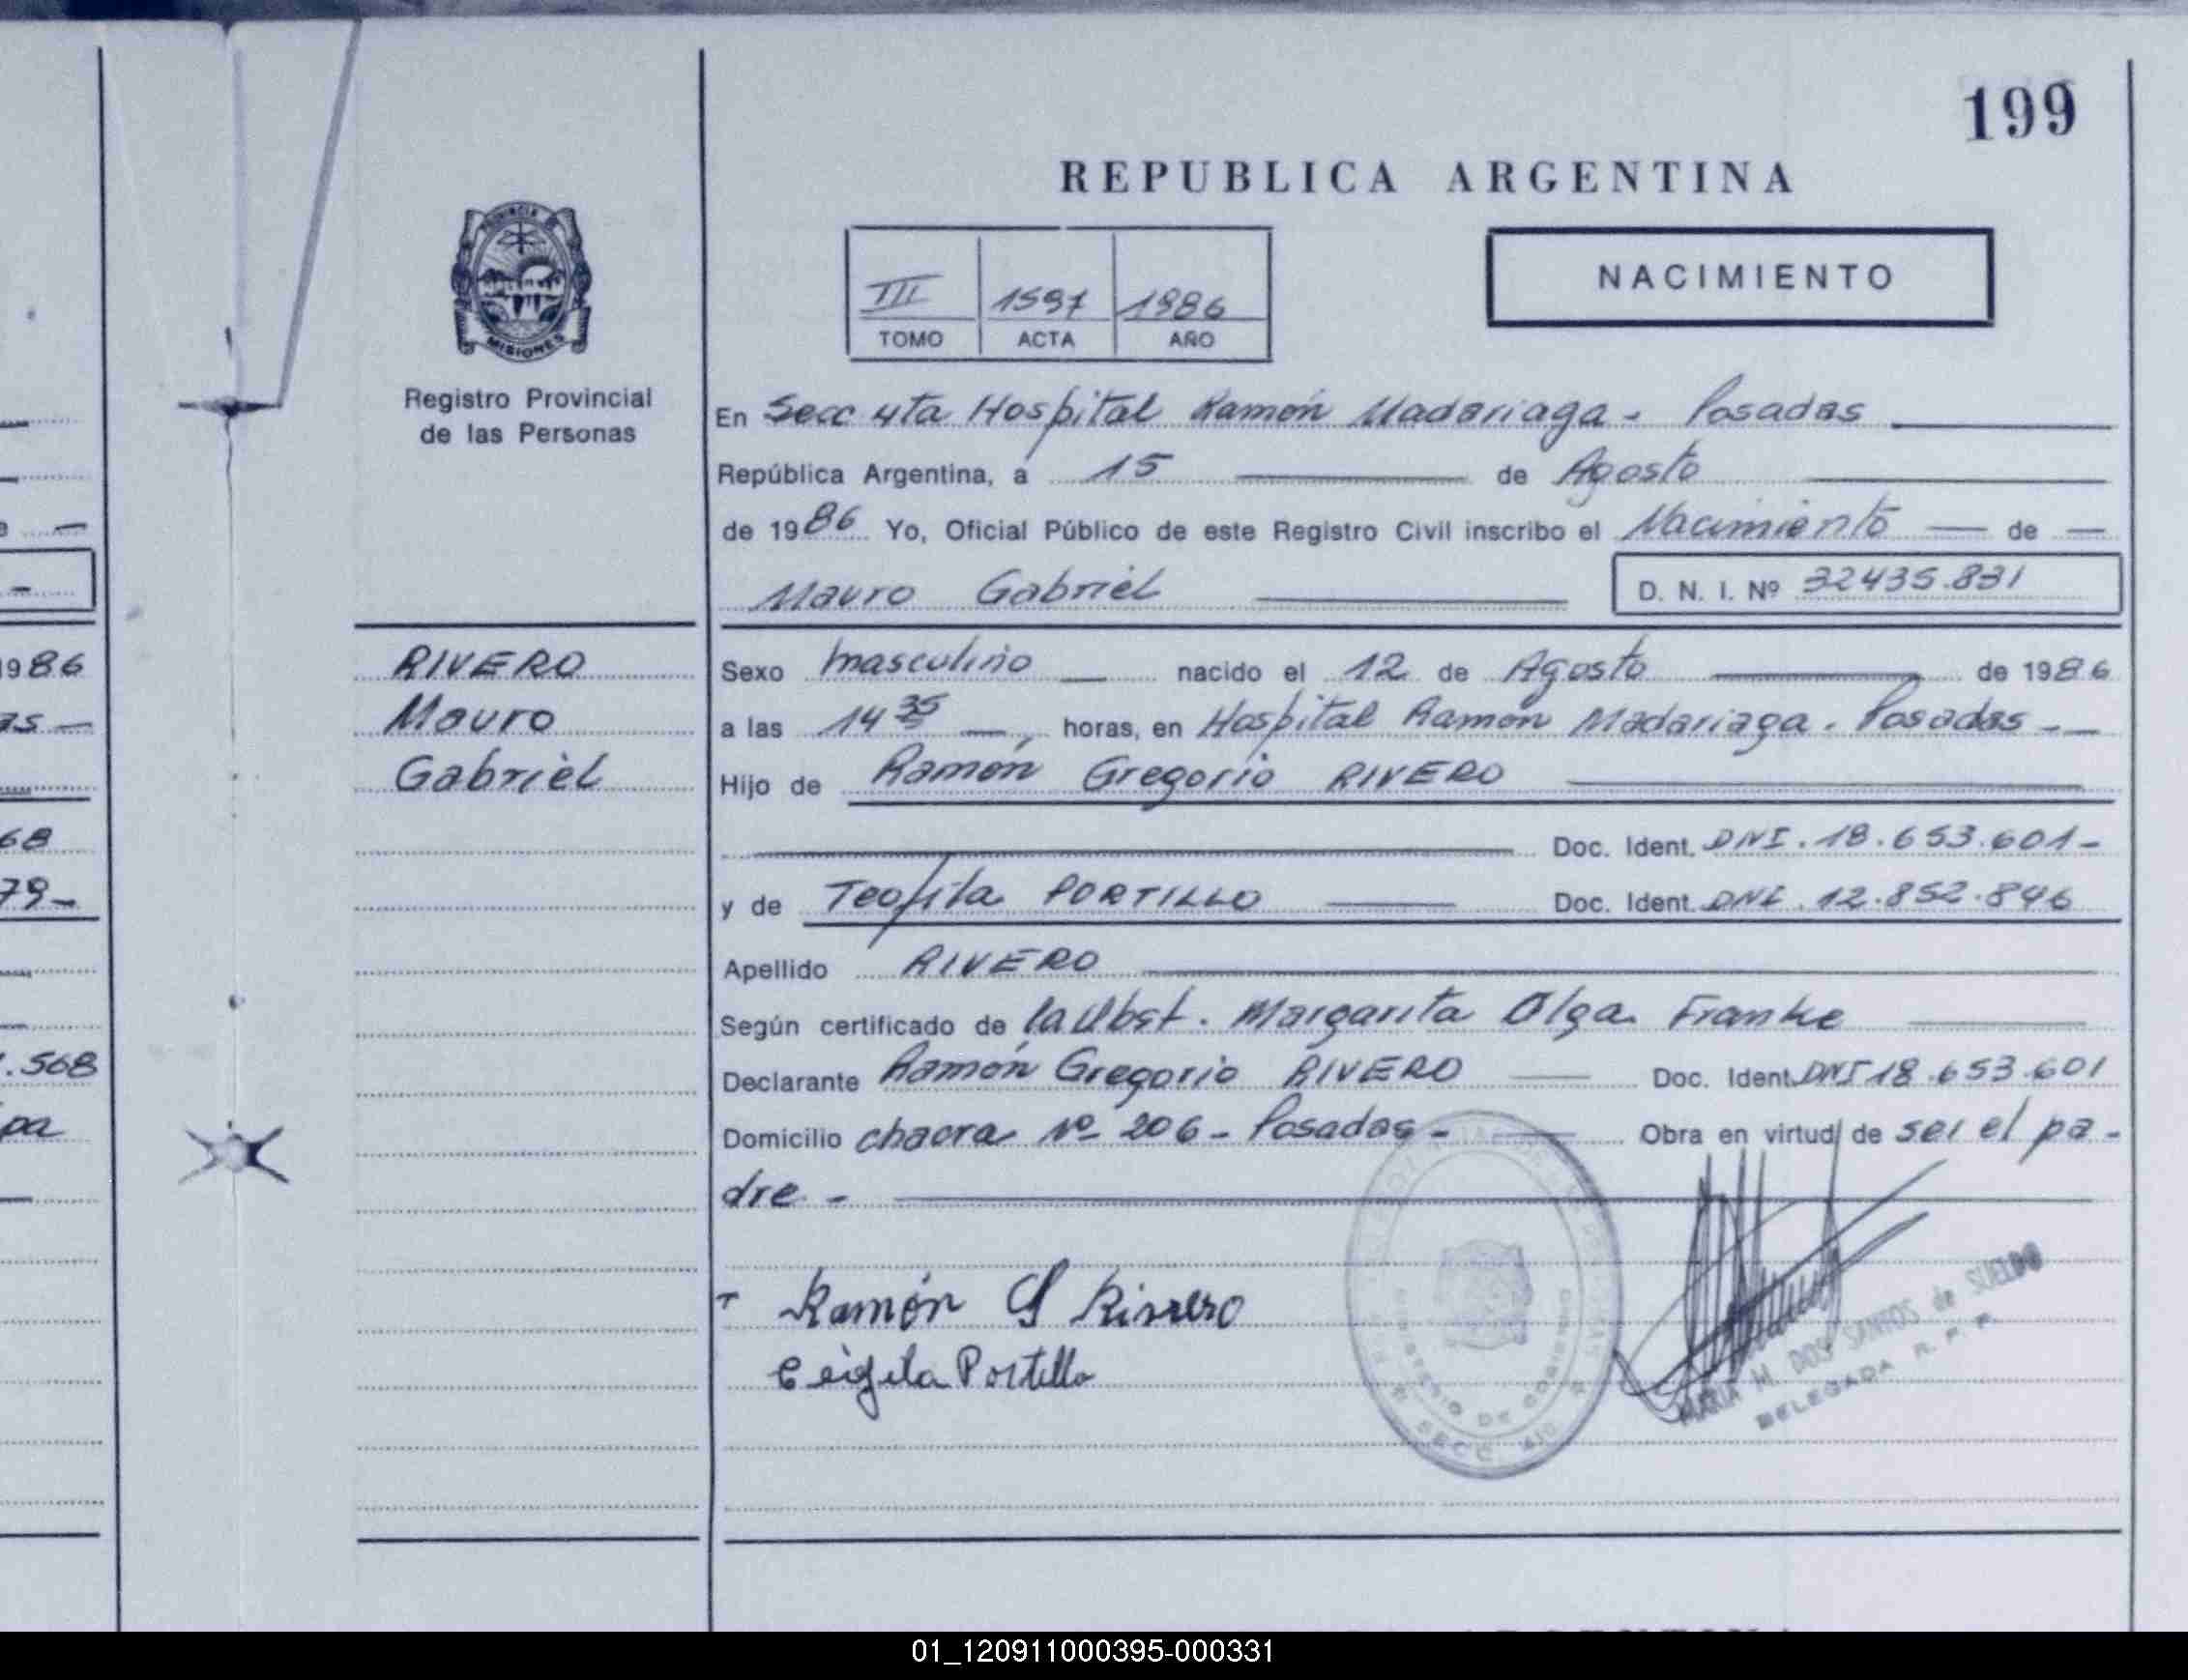 199
REPUBLICA ARGENTINA
PROVINCIA
MISIONES
Registro Provincial
de las Personas
III 1597 1986
TOMO ACTA AÑO
NACIMIENTO
En Secc 4ta Hospital Ramón Madariaga - Posadas
República Argentina, a 15 de Agosto
de 1986 Yo, Oficial Público de este Registro Civil inscribo el Nacimiento — de —
Mauro Gabriel
D. N. I. Nº 32435.831
RIVERO
Mauro
Gabriel
Sexo masculino — nacido el 12 de Agosto de 1986
a las 14 35 — horas, en Hospital Ramón Madariaga - Posadas -
Hijo de Ramón Gregorio RIVERO
Doc. Ident. DNI. 18.653.601-
y de Teofila PORTILLO — Doc. Ident. DNI. 12.852.846
Apellido RIVERO
Según certificado de la Obst. Margarita Olga Franke
Declarante Ramón Gregorio RIVERO — Doc. Ident. DNI 18.653.601
Domicilio chacra Nº 206 - Posadas - Obra en virtud de ser el pa-
dre -
Ramón G Rivero
Portillo
MARIA M. DOS SANTOS de SUELDO
DELEGADA R. P. P.
MINISTERIO DE GOBIERNO
SECC. 4ta
986
as —
68
79-
.568
pa
01_120911000395-000331